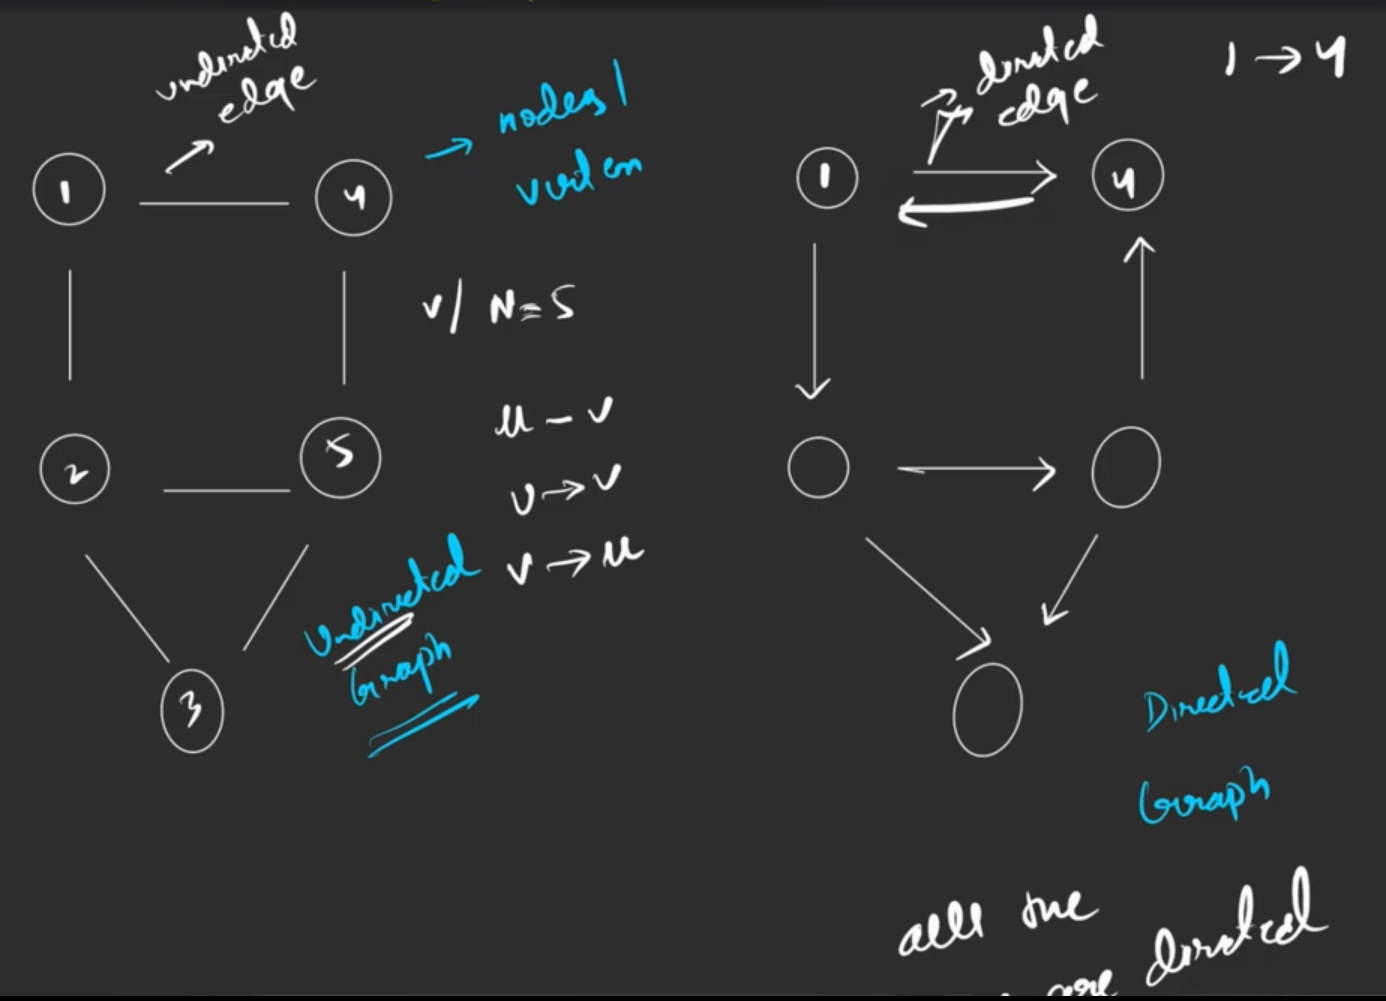 undirected
edge
1
4
→ nodes /
vertex
V/ N = 5
u - v
u → v
v → u
2
5
3
Undirected
Graph
directed
edge
1 → 4
1
4
Directed
Graph
all the
are directed